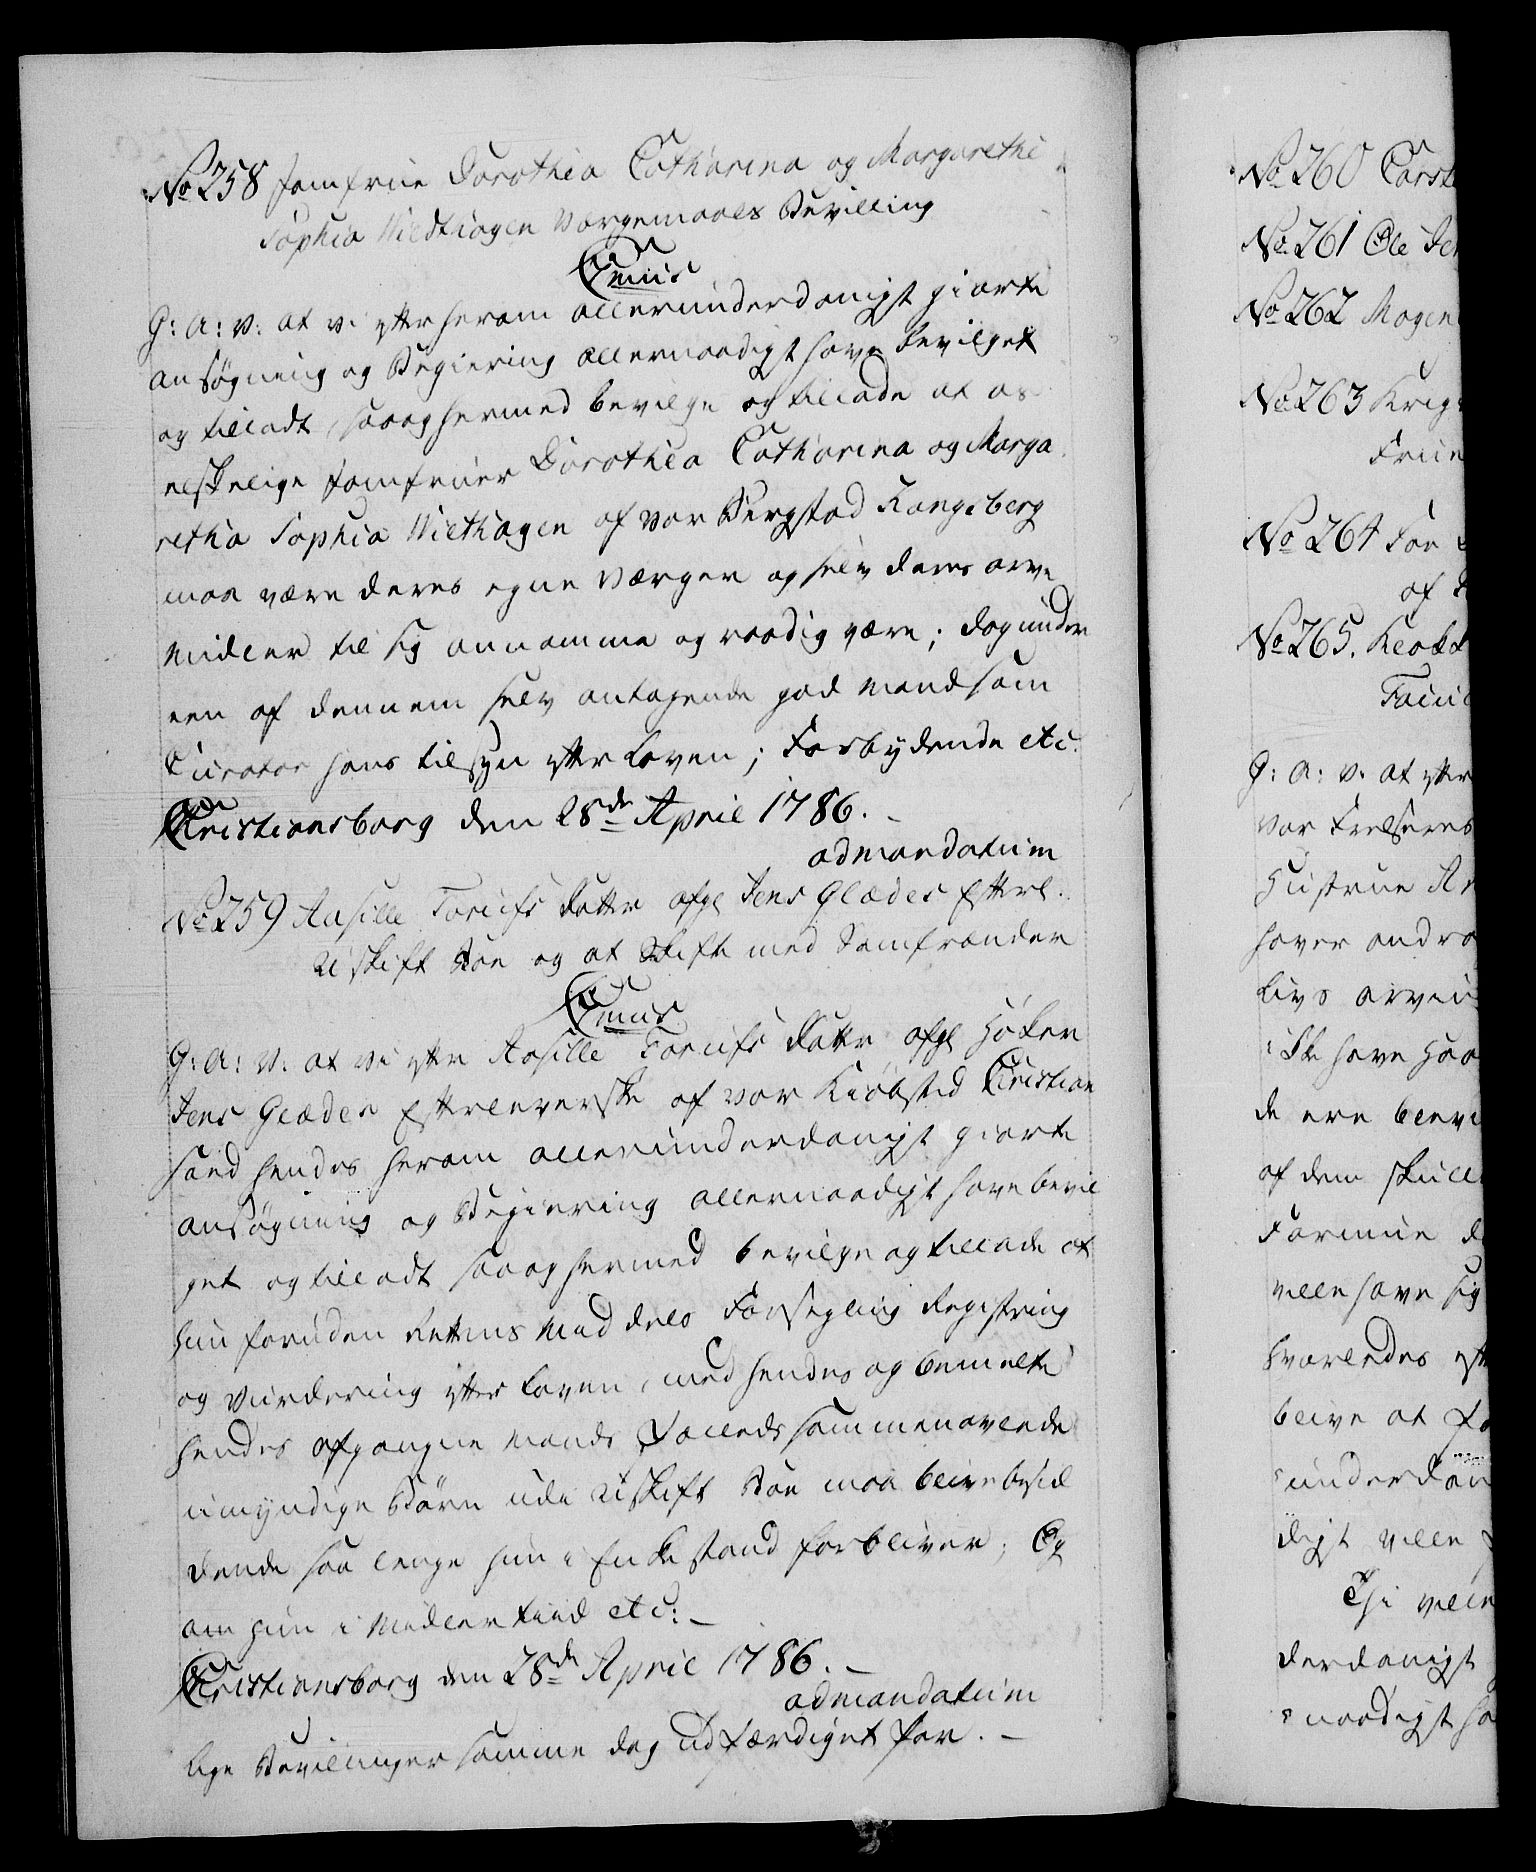 No 258 Jomfrue Dorothea Catharina og Margarethe
Sophia Niethagen Værgemaals Bevilling
Cmus
G: A: V: at vi efter herom allerunderdanigst giorte
ansøgning og Begiering allernaadigst have bevilget
og tilladt, saa og hermed bevilge og tillade at os
elskelige Jomfruer Dorothea Catharina og Marga
retha Sophia Niethagen af vor Bergstad Kongsberg
maa være deres egne Værger og selv deres arve
Midler til sig annamme og raadig være; dog under
een af dennem selv antagende god Mand som
Curator hans tilsyn efter Loven; Forbydende etc.
Christiansborg den 28de April 1786. -
ad mandatum
No 259 Aasille Forufs datter afgl Jens Glædes Efterl.
Uskift Boe og at Skifte med Samfrænder
Cmus
G: A: V: at vi efter Aasille Forufs Datter afgl Høker
Jens Glædes Efterleverske af vor Kiøbsted Christian
sand hendes herom allerunderdanigst giorte
ansøgning og Begiering allernaadigst have bevil
get og tilladt saa og hermed bevilge og tillade at
hun foruden Rettens Middels Forsegling Registring
og Vurdering efter Loven, med hendes og bemelte
hendes afgangne Mands Fælleds sammenavlede
umyndige Børn udi Uskift Boe maa blive besid
dende saa lenge hun i Enkestand forbliver; Og
om hun i Midlertiid etc: -
Christiansborg den 28de April 1786. -
ad mandatum
lige Bevilinger samme dag udfærdiget for. -
No 260 Carst
No 261 Ole Jen
No 262 Mogen
No 263 Krigs
Friie
No 264 Foe
af
No 265. Klokk
G: A: V: at efter
vor Frelseres
Hustrue An
haver andra
Livs arvin
ikke have Haa
de ere blevn
af dem skull
Formue
ville have sig
svarendes eft
blive at fo
underdan
digst ville
Thi ville
derdanigst
naadigst ha